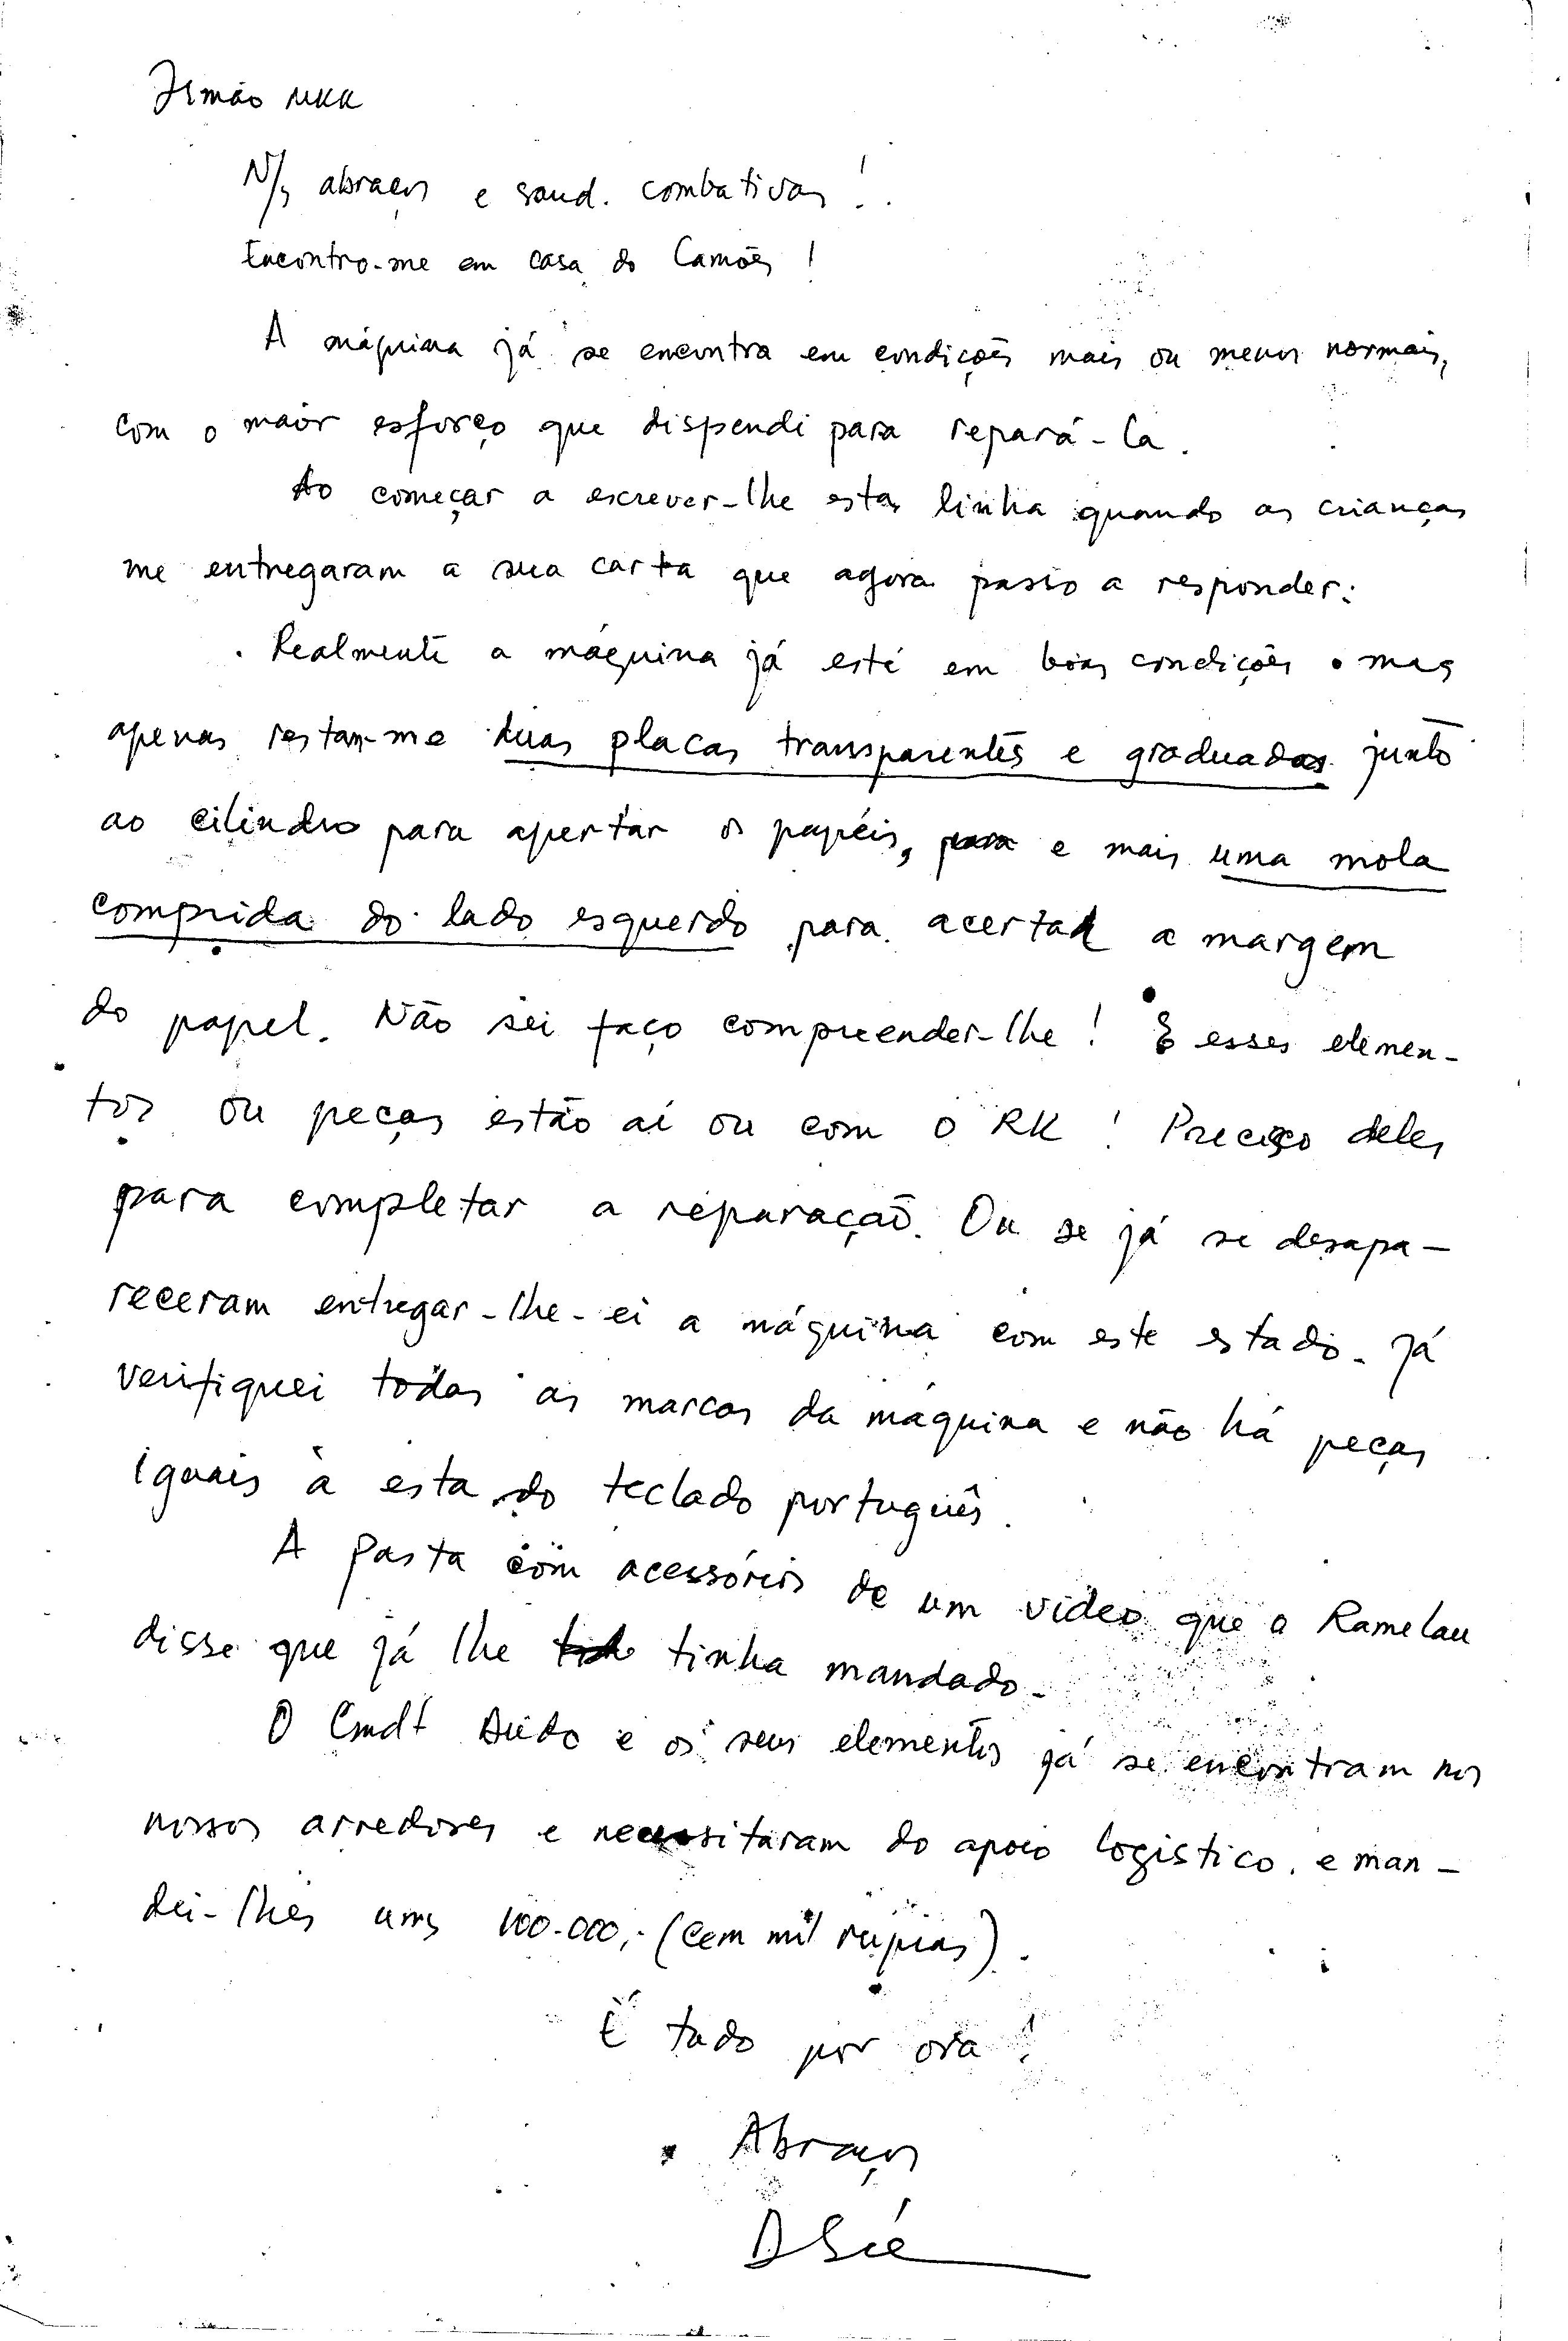 Irmão MKK
N/s abraços e saud. combativas!
Encontro-me em casa do Camões!
A máquina já se encontra em condições mais ou menos normais,
com o maior esforço que dispendi para repará-la.
Ao começar a escrever-lhe estas linha quando as crianças
me entregaram a sua carta que agora passo a responder:
. Realmente a máquina já está em boas condições . mas
apenas restam-me duas placas transparentes e graduadas junto
ao cilindro para apertar os papéis, e mais uma mola
comprida do lado esquerdo para acertar a margem
do papel. Não sei faço compreender-lhe! E esses elemen-
tos ou peças estão aí ou com o RK! Preciso deles
para completar a reparação. Ou se já se desapa-
receram entregar-lhe-ei a máquina com este estado. Já
verifiquei todas as marcas da máquina e não há peças
iguais à esta do teclado português.
A pasta com acessórios de um vídeo que o Ramelau
disse que já lhe tinha mandado.
O Cmdt e os seus elementos já se encontram nos
nossos arredores e necessitaram do apoio logístico. e man-
dei-lhes uns 100.000,- (cem mil rúpias).
É tudo por ora!
Abraços